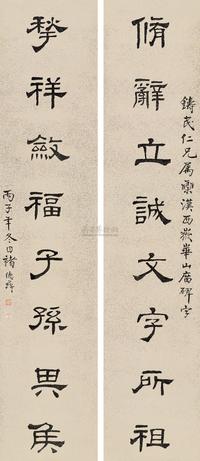 脩辭立誠文字所祖
孷祥斂福子孫畀矦
鑄民仁兄属 漢西嶽華山廟碑字
丙子年冬日褚德彝